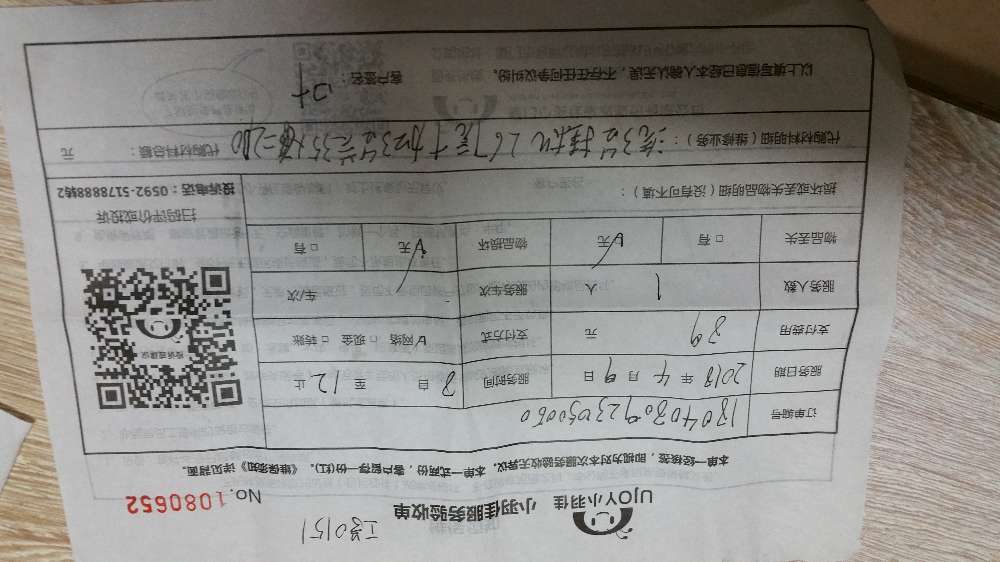 工号0151
UJOY小羽佳 小羽佳服务验收单
No.1080652
本单一经核签，即视为对本次服务验收无异议。本单一式两份，客户留存一份(红)。《维保须知》详见背面。
订单编号 1804080923050060
服务日期 2018 年 4 月 9 日 服务时间 8 自 至 12 止
支付费用 39 元 支付方式 网络 现金 转账
服务人数 1 人 服务车次 车/次
物品丢失 有 无 物品损坏 无 有
投诉或建议
扫码评价或投诉
投诉电话：0592-5178888转2
损坏或丢失物品明细（没有可不填）：
代购材料明细（维修业务）： 代购材料总额： 元
以上填写信息已经本人确认无误，不存在任何争议纠纷。 客户签名：